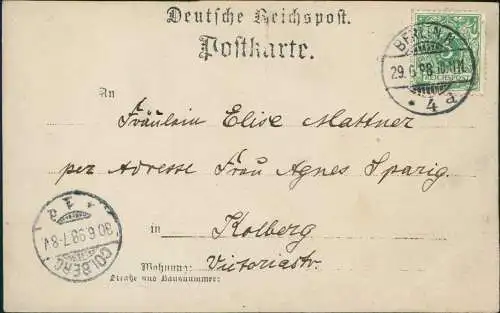 Deutsche Reichspost.
Postkarte.
BERLIN, N.
29.6.98.10-11N.
* 4 a
REICHSPOST
An
Fräulein Elise Mattner
per Adresse Frau Agnes Sparig.
in Kolberg
Wohnung: Victoriastr.
Straße und Hausnummer:
COLBERG
30.6.98.7-8V.
* 1 a